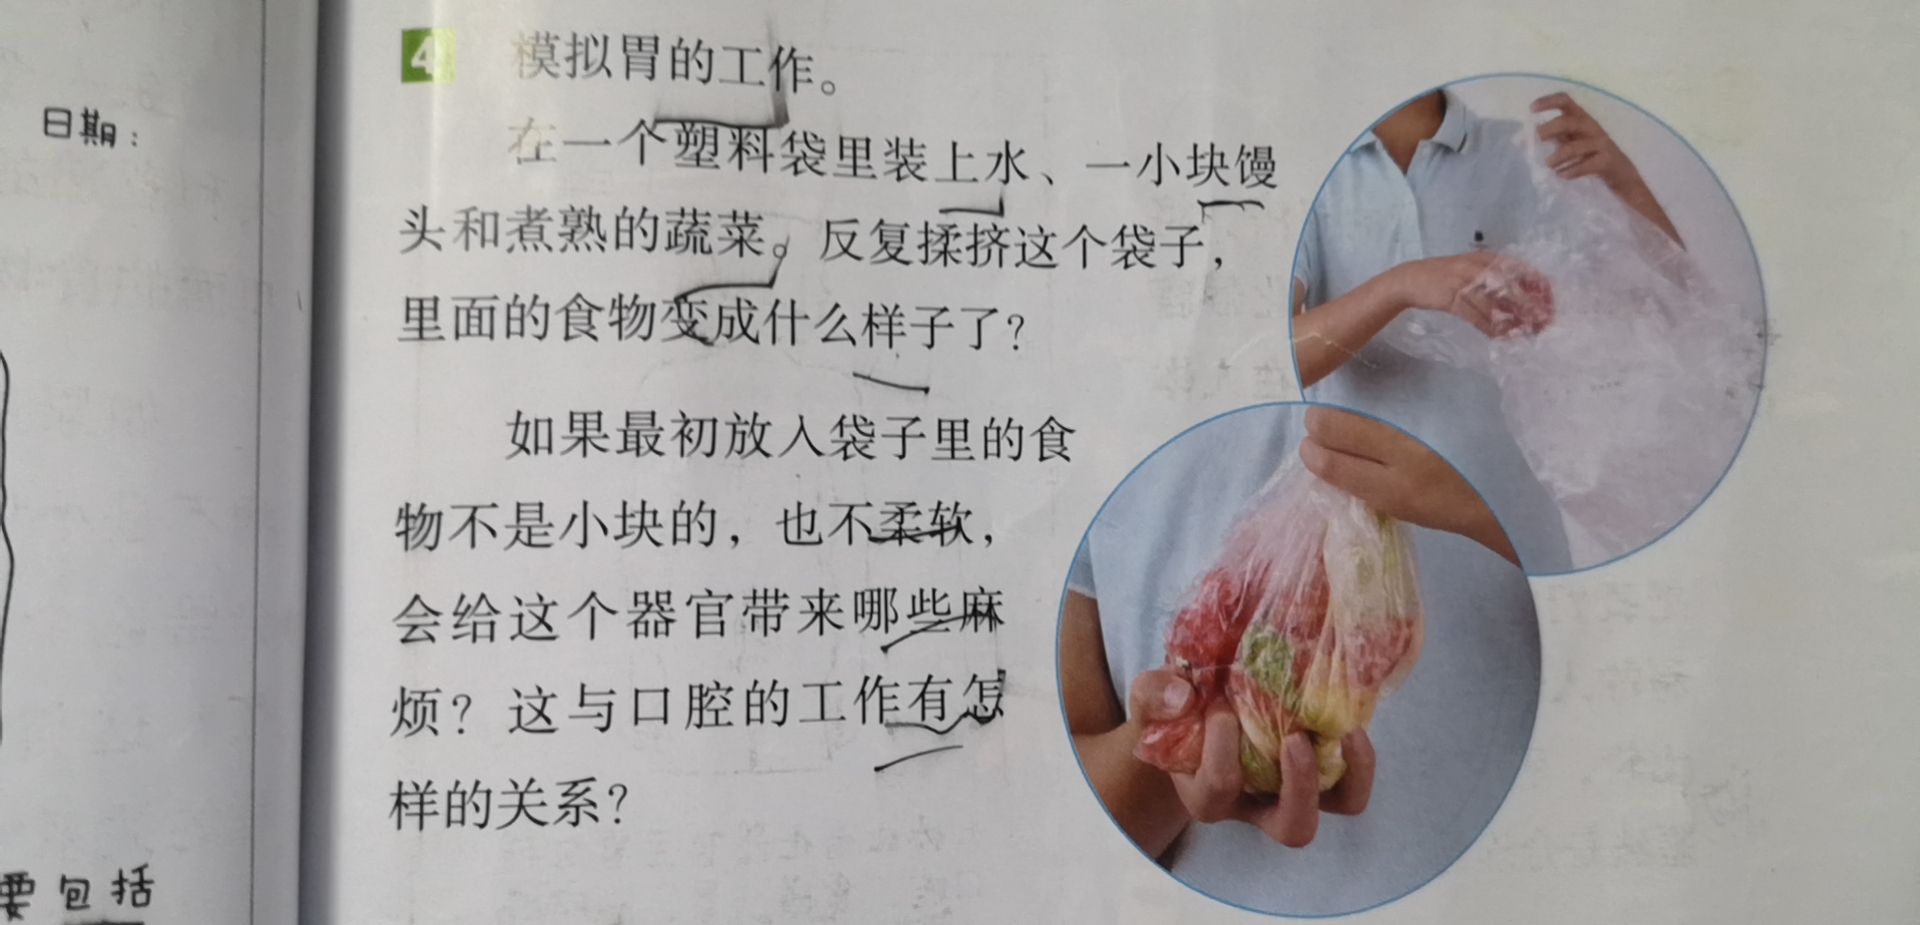 日期：
要包括
4 模拟胃的工作。
在一个塑料袋里装上水、一小块馒
头和煮熟的蔬菜。反复揉挤这个袋子，
里面的食物变成什么样子了？
如果最初放入袋子里的食
物不是小块的，也不柔软，
会给这个器官带来哪些麻
烦？这与口腔的工作有怎
样的关系？